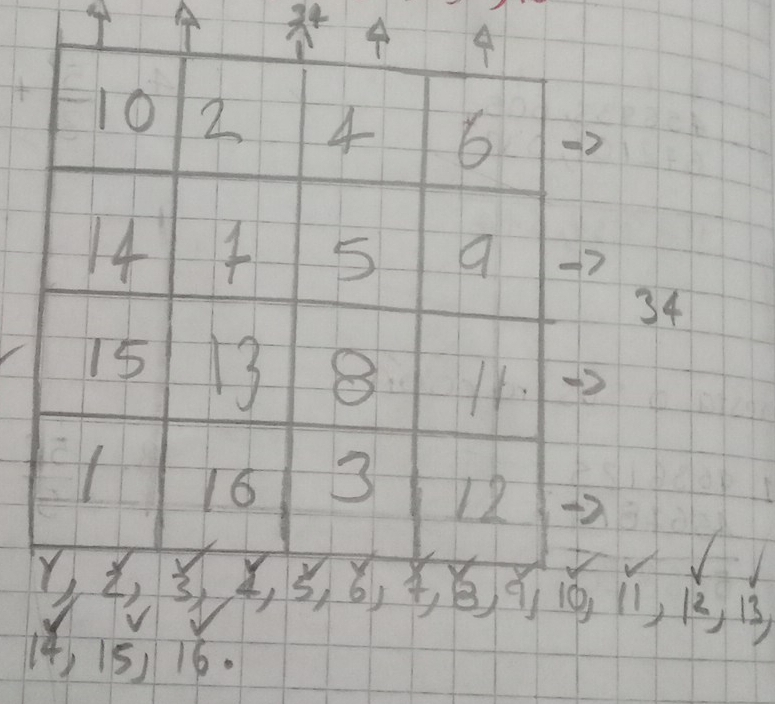 34
10 2 4 6 ->
14 7 5 9 ->
34
15 13 8 11. ->
1 16 3 12 ->
1, 2, 3, 4, 5, 6, 7, 8, 9, 10, 11, 12, 13,
14, 15, 16.